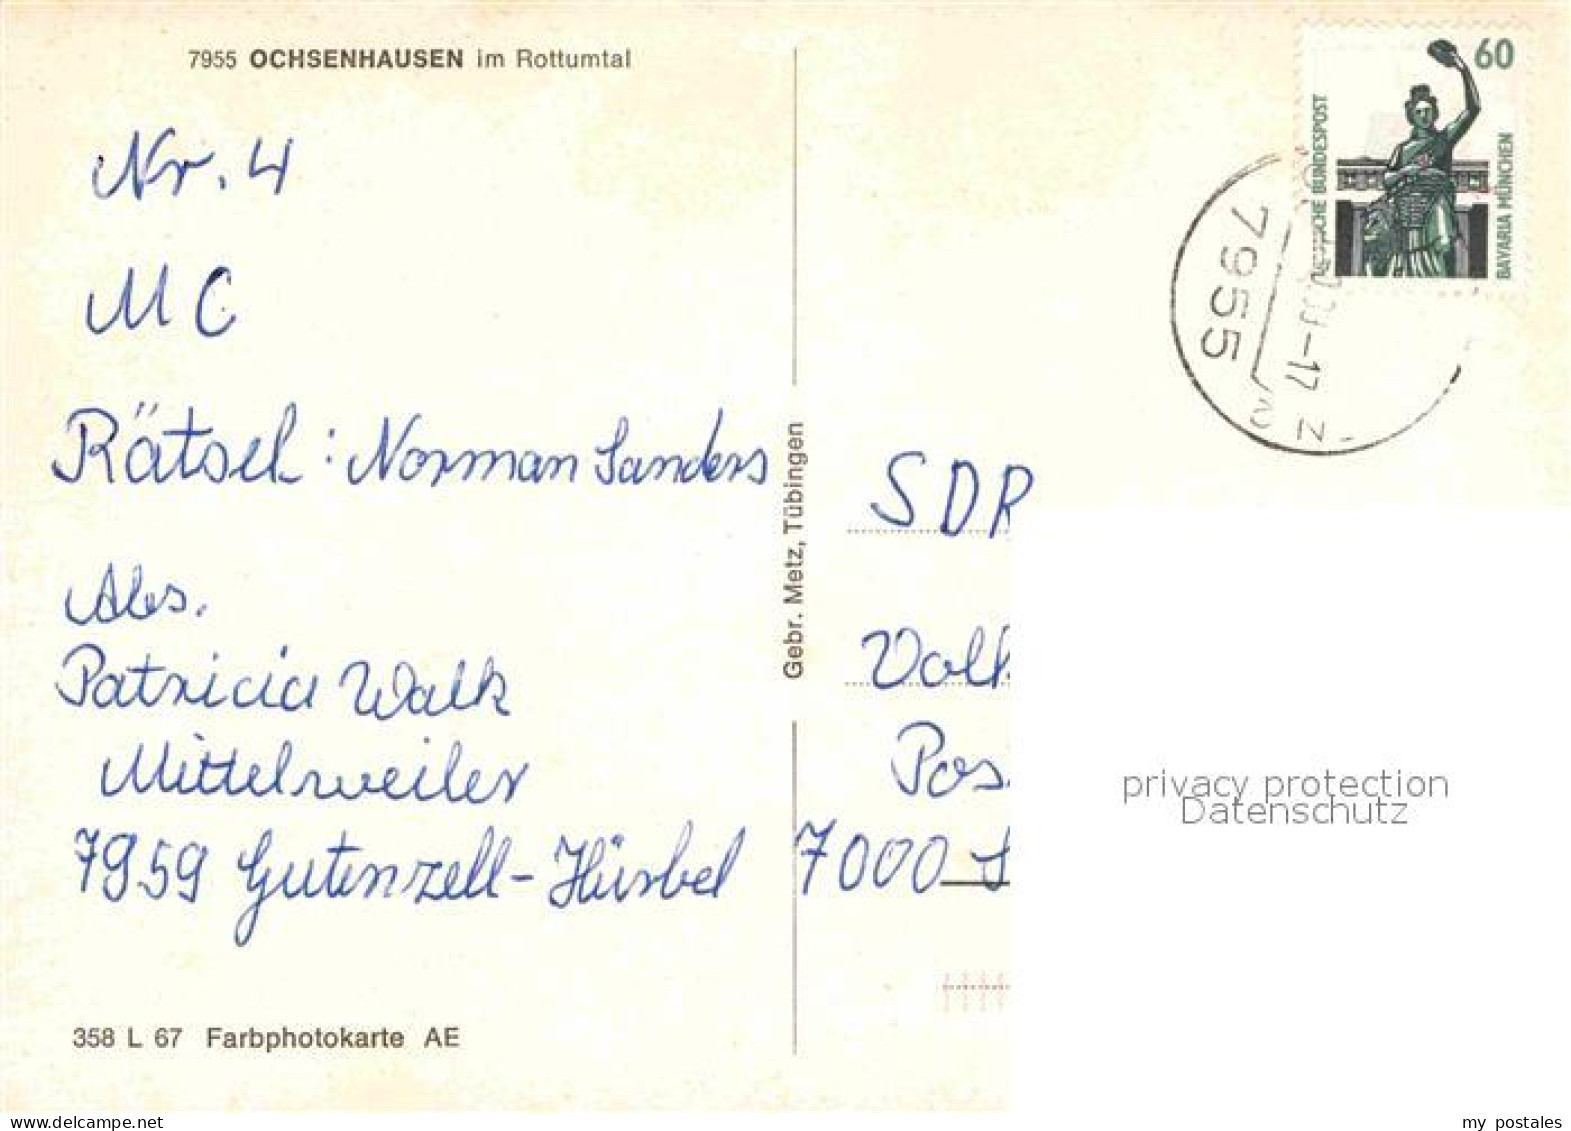 7955 OCHSENHAUSEN im Rottumtal
Nr. 4
MC
Rätsel: Norman Sanders
Abs.
Patricia Walk
Mittelweiler
7959 Gutenzell-Hürbel
358 L 67 Farbphotokarte AE
Gebr. Metz, Tübingen
60
DEUTSCHE BUNDESPOST
BAVARIA MÜNCHEN
7955
-17
SDR
Volk
Pos
7000 S
privacy protection
Datenschutz
my postales